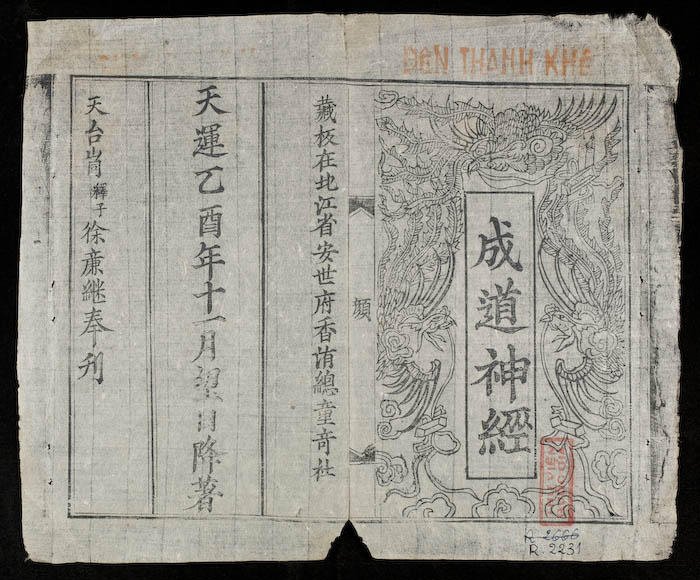 ĐỀN THANH KHÊ
成道神經
顏
藏板在北江省安世府香洧總童竒社
天運乙酉年十一月望日降著
天台嵩釋子徐㢘継奉刊
R 2666
R. 2231